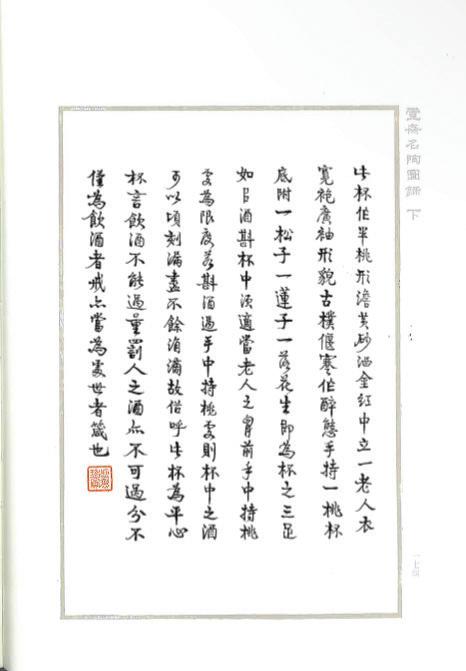 壺齋名陶圖錄 下
此杯作半桃形澹黃砂洒金紅中立一老人衣
寬袍廣袖形貌古樸偃蹇作醉態手持一桃杯
底附一松子一蓮子一落花生即為杯之三足
如以酒斟杯中須適當老人之胃前手中持桃
處為限度若斟酒過手中持桃處則杯中之酒
可以頃刻漏盡不餘涓滴故俗呼此杯為平心
杯言飲酒不能過量罰人之酒亦不可過分不
僅為飲酒者戒亦當為處世者箴也